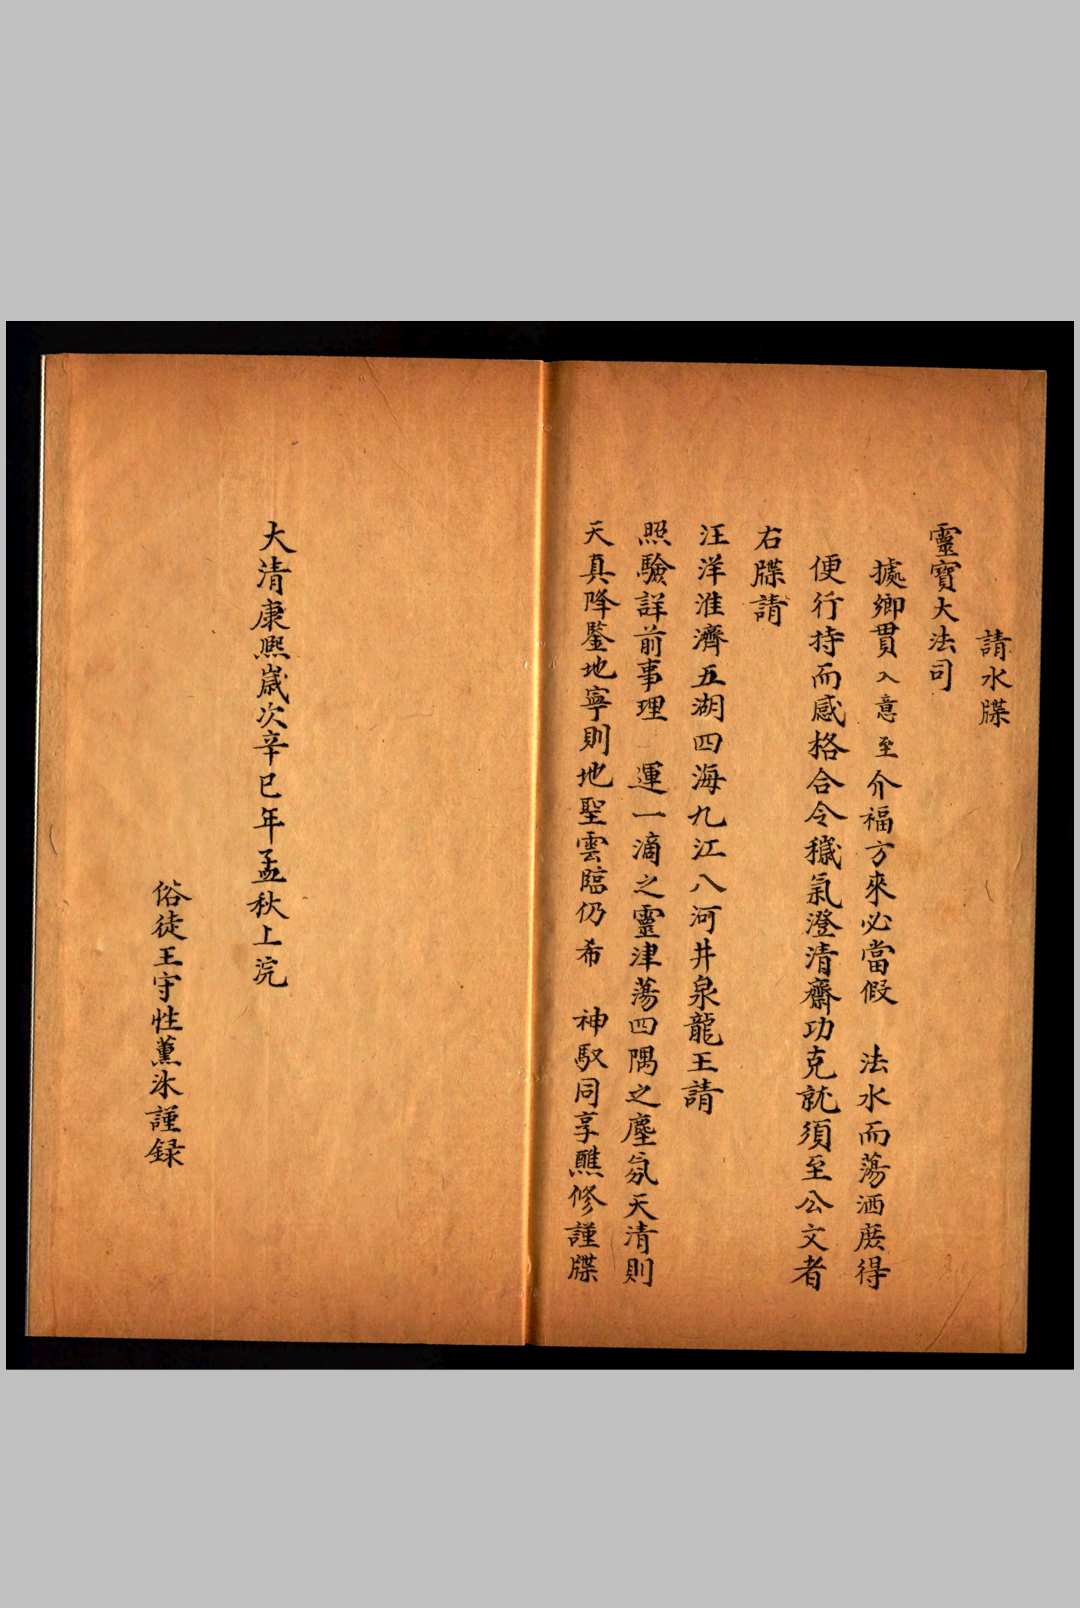 請水牒
靈寶大法司
據鄉貫入意至介福方來必當假　法水而蕩洒庻得
便行持而感格合令穢氣澄清齋功克就須至公文者
右牒請
汪洋淮濟五湖四海九江八河井泉龍王請
照驗詳前事理　運一滴之靈津蕩四隅之塵氛天清則
天真降鑒地寧則地聖雲臨仍希　神馭同享醮修謹牒
大清康熙歲次辛巳年孟秋上浣
俗徒王守性薰沐謹録